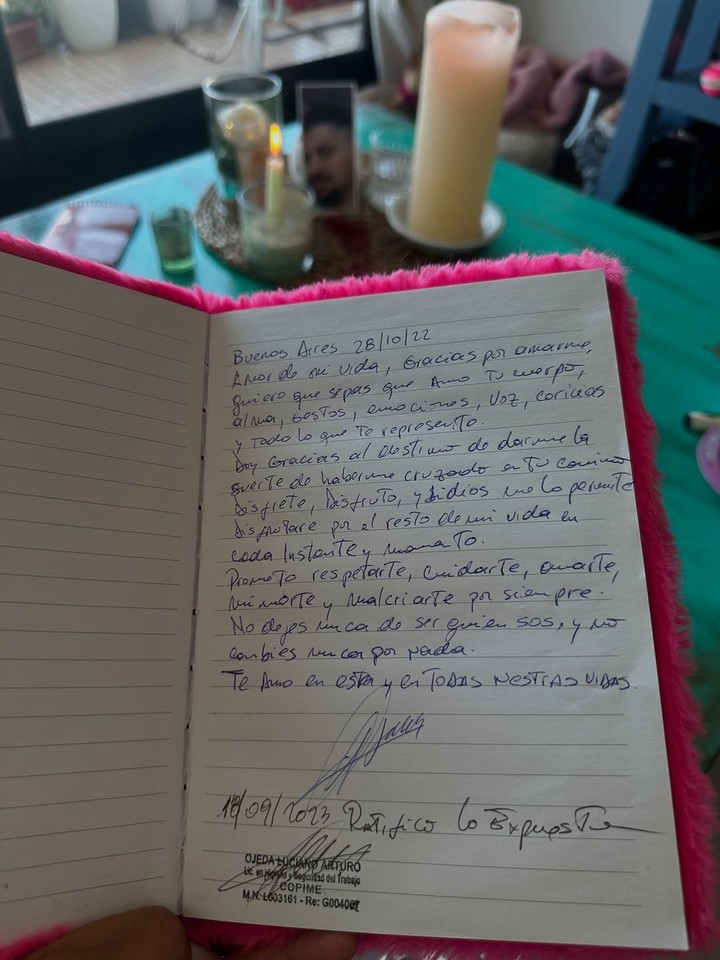 Buenos Aires 28/10/22
Amor de mi vida, Gracias por amarme,
quiero que sepas que Amo Tu cuerpo,
alma, Gestos, emociones, Voz, caricias
y Todo lo que Te represente.
Doy Gracias al Destino de darme la
suerte de haberme cruzado en Tu camino
Disfrete, Disfruto, y si dios me lo permite
Disfrutare por el resto de mi vida en
cada Instante y momento.
Prometo respetarte, Cuidarte, amarte,
mimarte y malcriarte por siempre.
No dejes nunca de ser quien sos, y no
cambies nunca por nada.
Te Amo en esta y en TODAS NUESTRAS VIDAS.
18/09/2023 Ratifico lo Expuesto
OJEDA LUCIANO ARTURO
Lic. en Higiene y Seguridad del Trabajo
COPIME
M.N. L003161 - Re: G004067